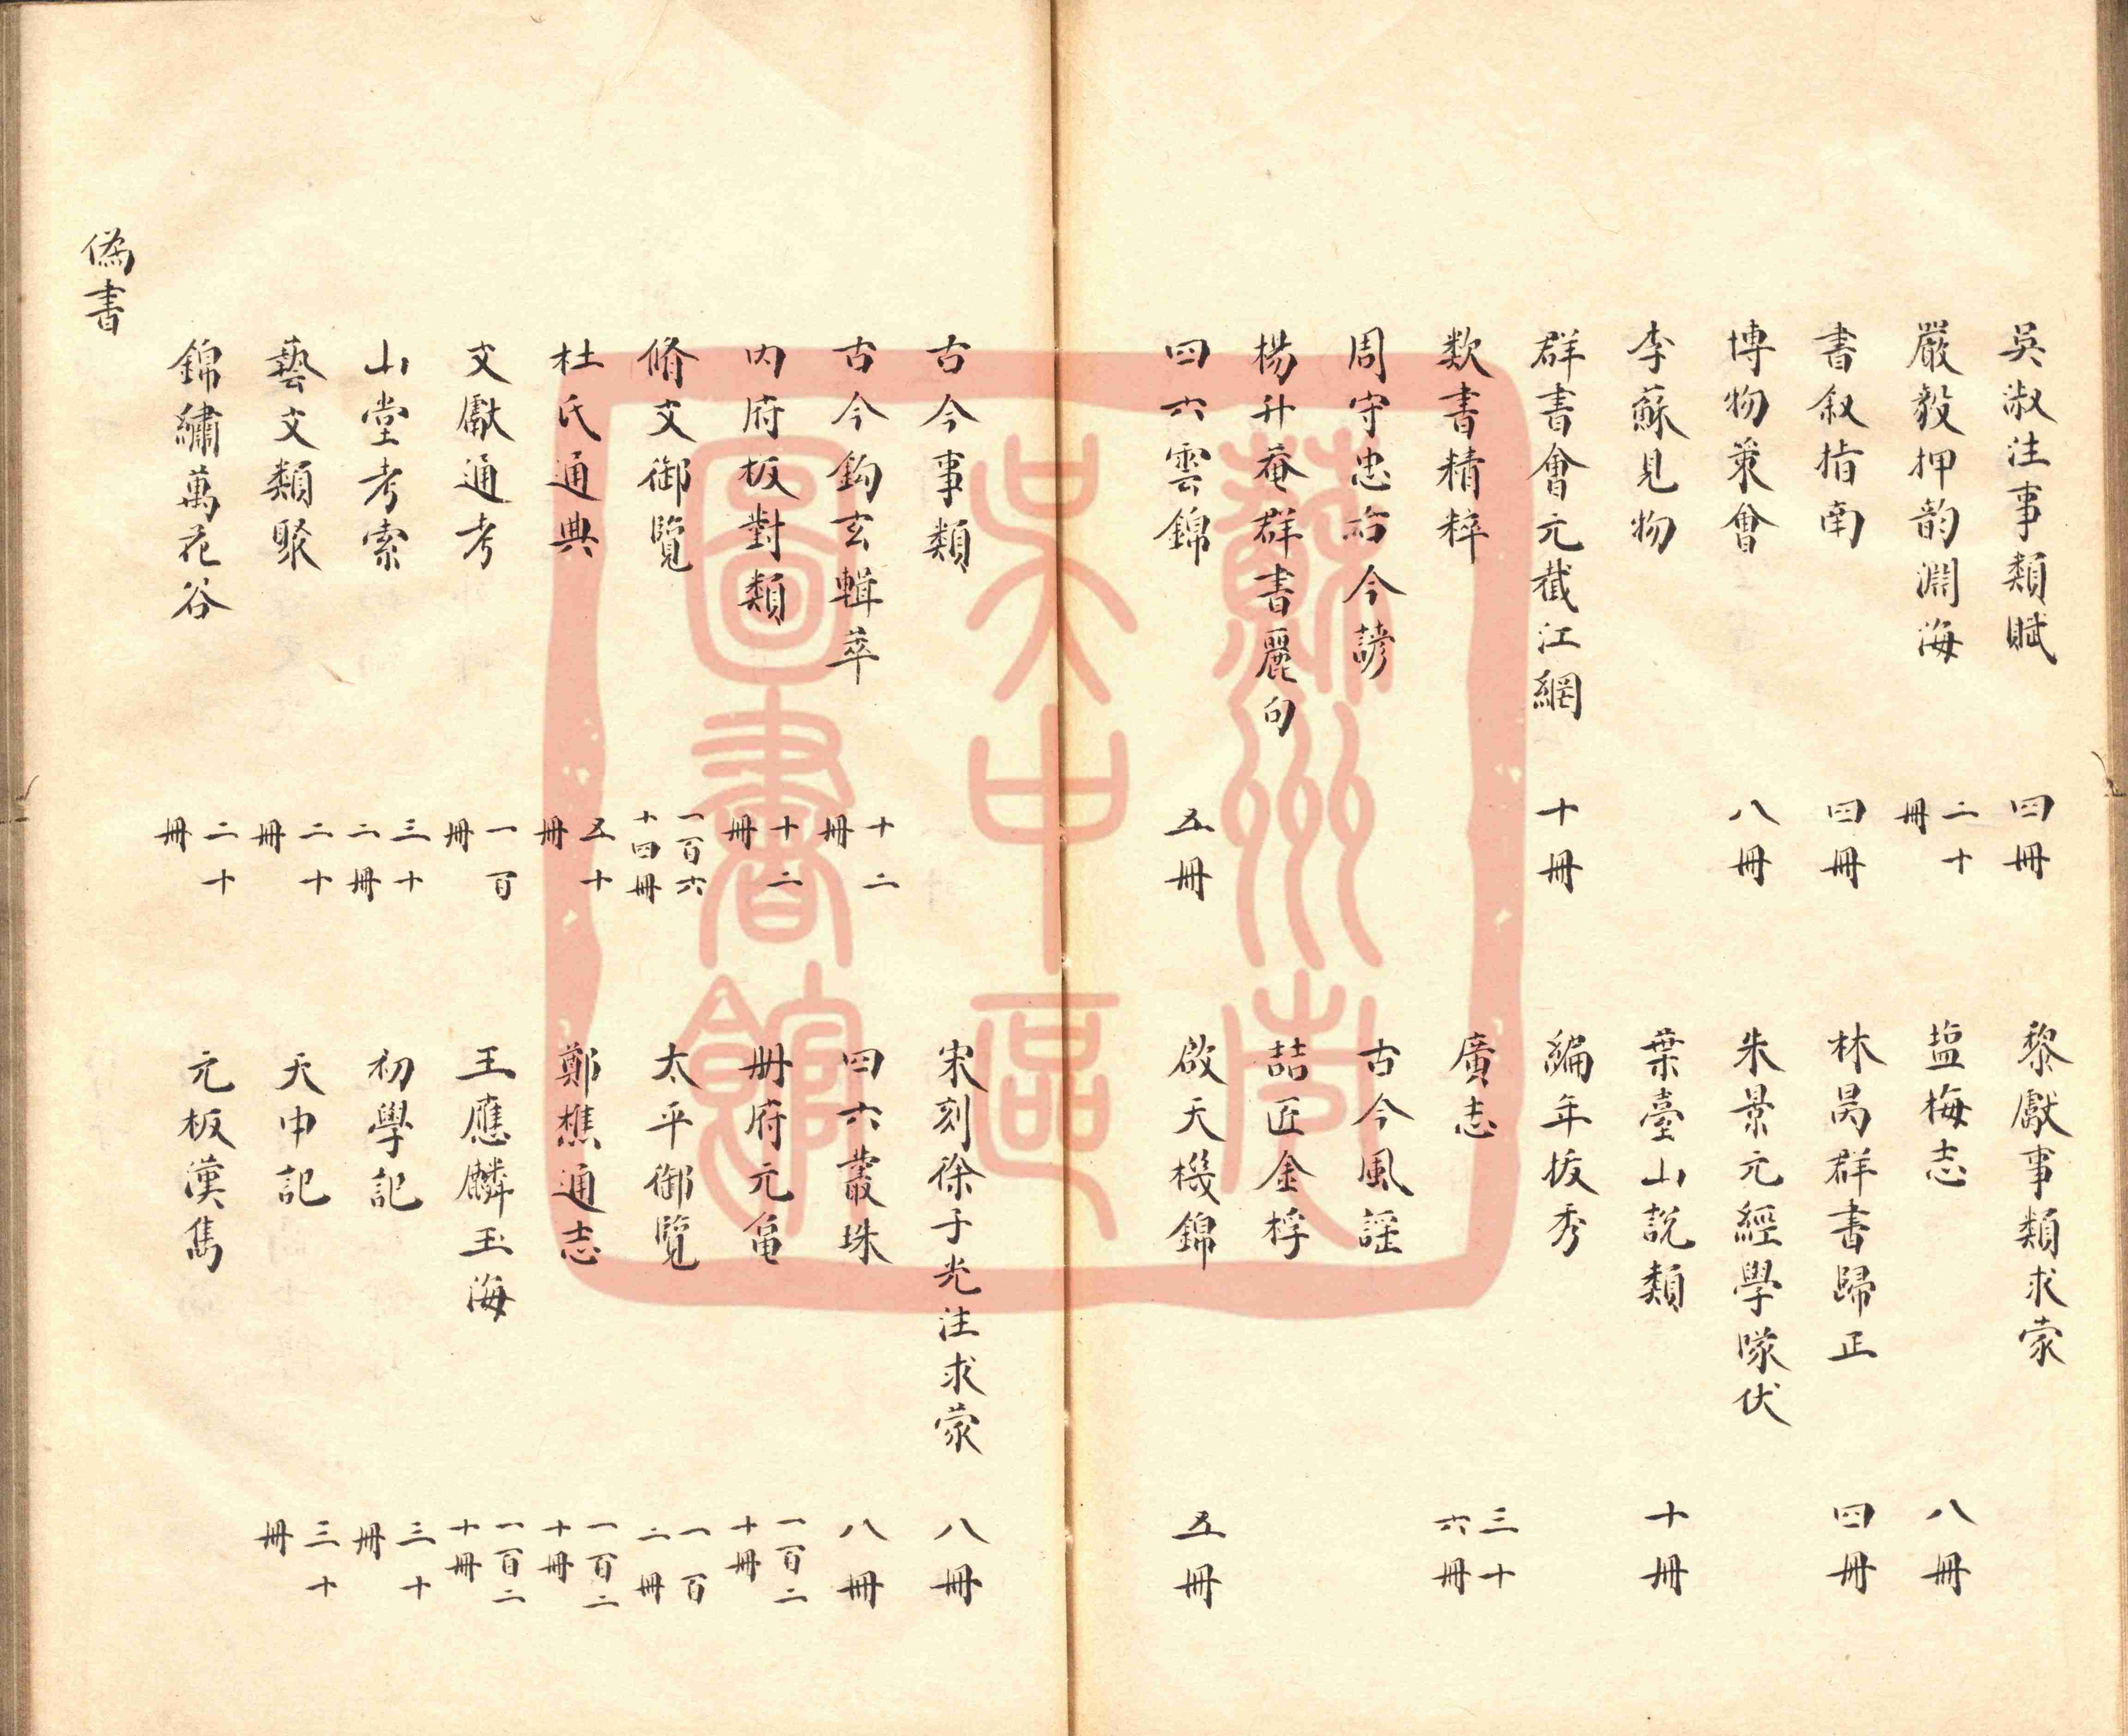 吳淑注事類賦 四冊 黎獻事類求蒙
嚴毅押韵淵海 二十冊 塩梅志 八冊
書叙指南 四冊 林昺群書歸正 四冊
博物策會 八冊 朱景元經學隊伏
李蘇見物 葉臺山説類 十冊
群書會元截江網 十冊 編年拔秀
數書精粹 廣志 三十六冊
周守忠古今諺 古今風謡
楊升菴群書麗句 喆匠金桴
四六雲錦 五冊 啟天機錦 五冊
古今事類 宋刻徐子光注求蒙 八冊
古今鈎玄輯萃 十二冊 四六叢珠 八冊
内府板對類 十二冊 冊府元龜 一百二十冊
脩文御覽 一百六十四冊 太平御覽 一百二冊
杜氏通典 五十冊 鄭樵通志 一百二十冊
文獻通考 一百冊 王應麟玉海 一百二十冊
山堂考索 三十二冊 初學記 三十冊
藝文類聚 二十冊 天中記 三十冊
錦繡萬花谷 二十冊 元板漢雋
偽書
蘇州市
吴中區
圖書館